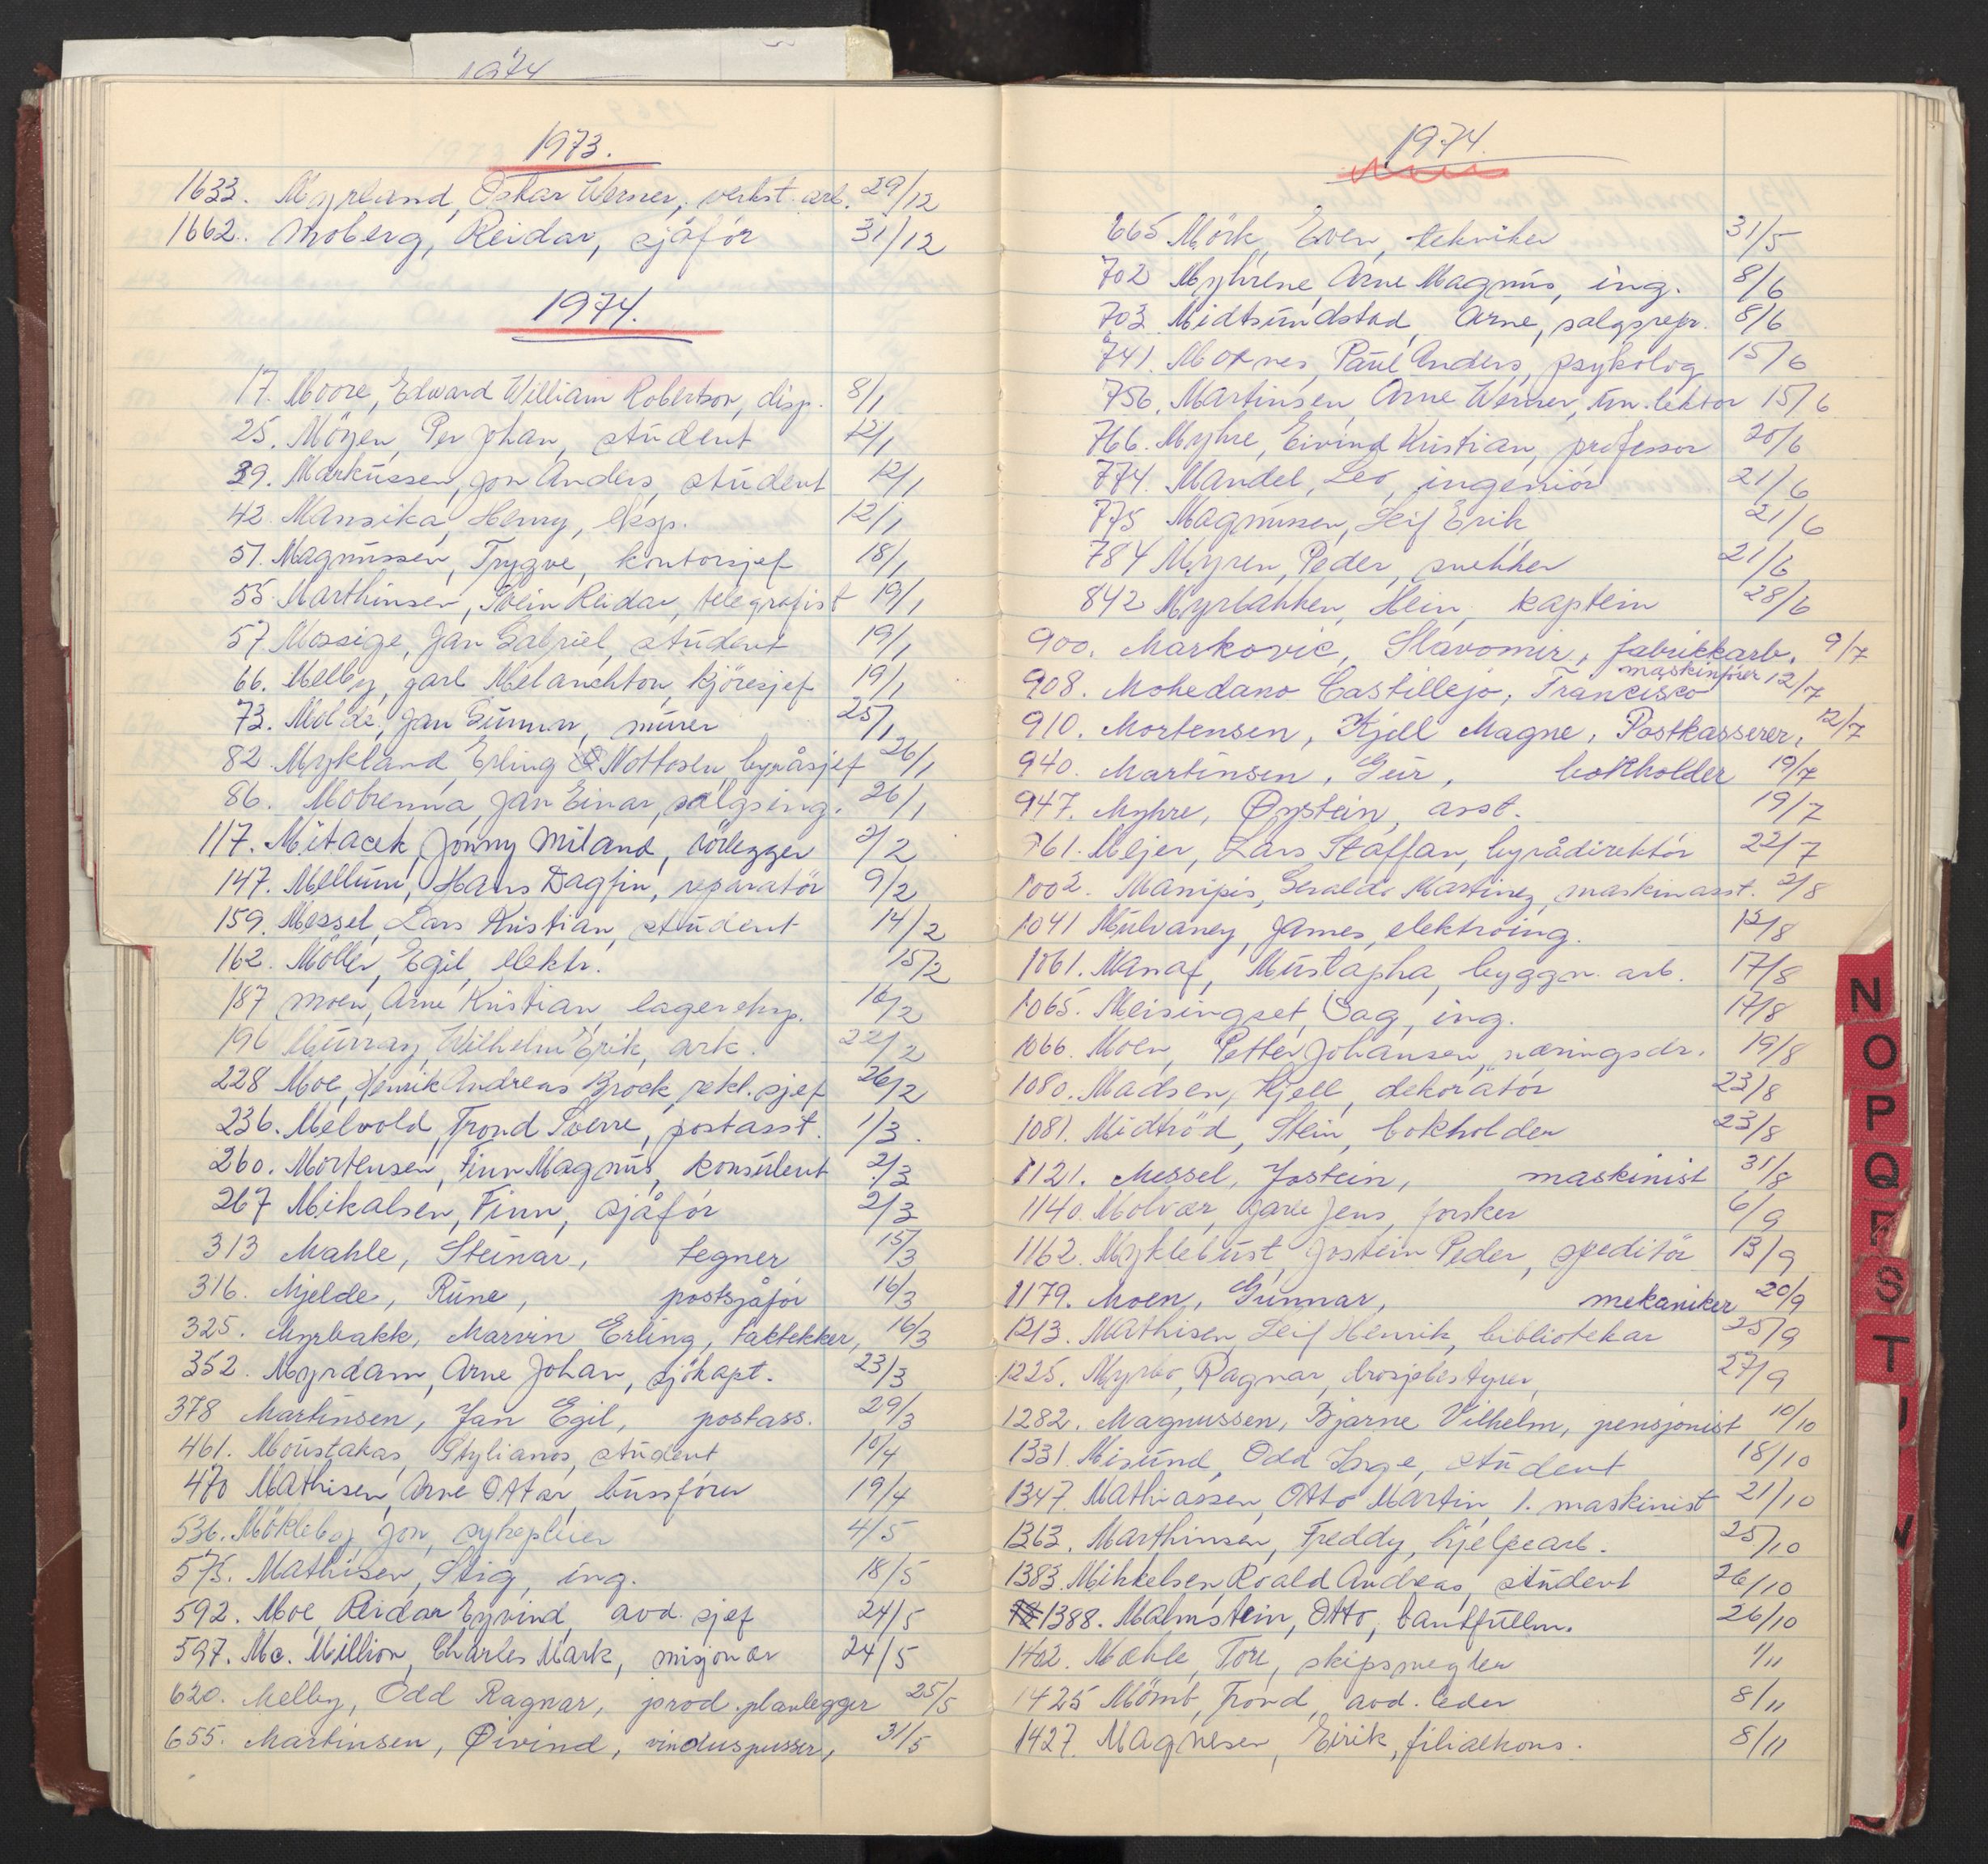 1974
1973.
1633. Myrland, Oskar Werner, verkst. arb. 29/12
1662. Moberg, Reidar, sjåför 31/12
1974.
17. Moore, Edward William Robertson, disp. 8/1
25. Möyen, Per Johan, student 12/1
39. Markussen, Jon Anders, student 12/1
42. Mansika, Henry, eksp. 12/1
51. Magnussen, Trygve, kontorsjef 18/1
55. Marthinsen, Svein Reidar, telegrafist 19/1
57 Mossige, Jan Gabriel, student 19/1
66. Melby, Carl Melanchton, kjöresjef 19/1
73. Molde, Jan Gunnar, murer 25/1
82. Mykland, Erling Nottosen byråsjef 26/1
86. Mobrenna, Jan Einar, salgsing. 26/1
117. Mitacek, Jonny Miland, rörlegger 2/2
147. Mellum, Hans Dagfin, reparatör 9/2
159. Messel, Lars Kristian, student 14/2
162. Möller, Egil, elektr. 15/2
187 Moen, Arne Kristian lagereksp. 16/2
196 Murray, Wilhelm Erik, ark. 22/2
228 Moe, Henrik Andreas Brock, rekl. sjef 26/2
236. Melvold, Trond Sverre, postasst. 1/3.
260. Mortensen, Finn Magnus, konsulent 2/3
267 Mikalsen, Finn, sjåför 2/3
313 Mahle, Steinar, tegner 15/3
316. Mjelde, Rune, postsjåför 16/3
325. Myrbakk, Marvin Erling, taktekker, 16/3
352. Myrdam, Arne Johan, sjökapt. 23/3
378 Martinsen, Jan Egil, postass. 29/3
461. Moustakas, Stylianos, student 10/4
470 Mathisen, Arne Ottar, bussförer 19/4
536. Mökleby, Jon, sykepleier 4/5
575. Mathisen, Stig, ing. 18/5
592. Moe, Reidar Eyvind, avd. sjef 24/5
597. Mc. Million, Charles Mark, misjonær 24/5
620. Melby, Odd Ragnar, prod. planlegger 25/5
655. Martinsen, Øivind, vinduspusser, 31/5
1974.
665 Mörk, Even, tekniker 31/5
702 Myhrene, Arne Magnus, ing. 8/6
703 Midtsundstad, Arne, salgsrepr. 8/6
741. Moxnes, Paul Anders, psykolog 15/6
756. Martinsen, Arne Werner, un. lektor 15/6
766. Myhre, Eivind Kristian, professor 20/6
774. Mandel, Leo, ingeniör 21/6
775 Magnussen, Leif Erik 21/6
784 Myren, Peder, snekker 21/6
842 Myrbakken, Hein, kaptein 28/6
900. Markovic, Slavomir, fabrikkarb. 9/7
908. Mohedano Castillejo, Francisco maskinfører 12/7
910. Mortensen, Kjell Magne, Postkasserer, 12/7
940. Martinsen, Geir, bokholder 19/7
947. Myhre, Øystein, asst. 19/7
961. Mejer, Lars Staffan, byrådirektör 22/7
1002. Manipis, Geraldo Martinez, maskinasst. 2/8
1041 Mulvaney, James, elektroing. 12/8
1061. Manaf, Mustapha, byggn. arb. 17/8
1065. Meisingset, Dag, ing. 17/8
1066. Moen, Petter Johansen, næringsdr. 19/8
1080. Madsen, Kjell, dekoratör 23/8
1081. Midtröd, Stein, bokholder 23/8
1121. Messel, Jostein, maskinist 31/8
1140. Molvær, Jarle Jens, forsker 6/9
1162. Myklebust, Jostein Peder, speditör 13/9
1179. Moen, Gunnar, mekaniker 20/9
1213. Mathisen, Leif Henrik, bibliotekar 25/9
1225. Myrbo, Ragnar, drosjebestyrer, 27/9
1282. Magnussen, Bjarne Vilhelm, pensjonist 10/10
1331. Misund, Odd Inge, student 18/10
1347. Mathiassen, Otto Martin, 1. maskinist 21/10
1363. Marthinsen, Freddy, hjelpearb. 25/10
1383. Mikkelsen, Roald Andreas, student 26/10
1388. Malmstein, Otto, bankfullm. 26/10
1402. Mæhle, Tore, skipsmegler 1/11
1425 Mömb, Trond, avd. leder 8/11
1427. Magnesen, Eirik, filialkons. 8/11
N
O
P
Q
R
S
T